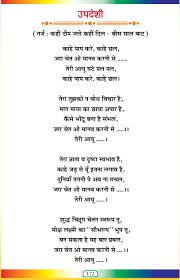 उपदेशी
( तर्ज : कहीं दीप जले कहीं दिल - बीस साल बाद )
काहे पाप करे, काहे छल,
जरा चेत ओ मानव करनी से ....
तेरी आयु घटे पल पल,
काहे पाप करे, काहे छल।
तेरा तुझको न बोध विचार है,
मान माया का छाया अपार है,
कैसे भोंदू बना है संभल,
जरा चेत ओ मानव करनी से ....
तेरी आयु ..... ।
तेरा ज्ञाता व दृष्टा स्वभाव है,
काहे जड़ से यूँ इतना लगाव है,
दुनियाँ ठगनी पे अब ना मचल,
जरा चेत ओ मानव करनी से ....
तेरी आयु ..... ।
शुद्ध चिद्रूप चेतन स्वरूप तू,
मोक्ष लक्ष्मी का "सौभाग्य" भूप तू,
बन सकता है यह बल प्रबल,
जरा चेत ओ मानव करनी से ....
तेरी आयु ..... ।
172